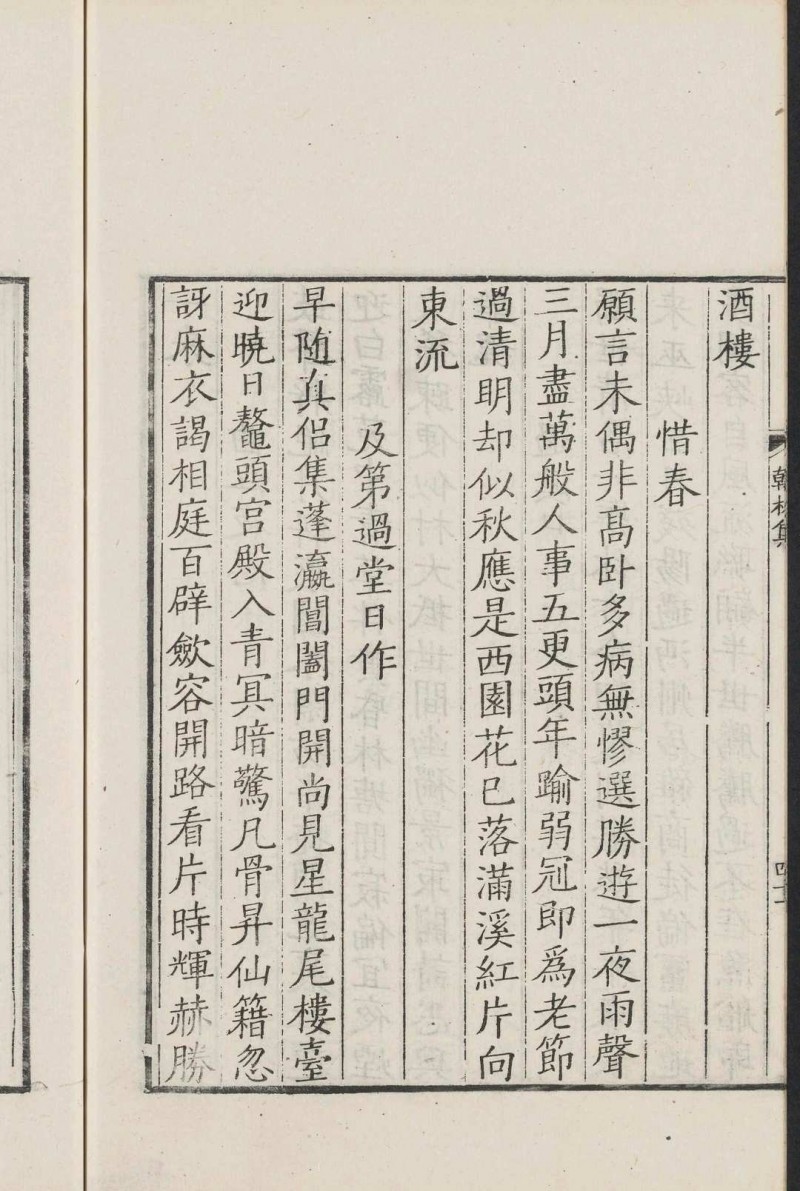 翰林集
酒樓
惜春
願言未偶非髙卧多病無憀選勝遊一夜雨聲
三月盡萬般人事五更頭年踰弱冠即爲老節
過清明却似秋應是西園花已落滿溪紅片向
東流
及第過堂日作
早随真侣集蓬瀛閶闔門開尚見星龍尾樓臺
迎曉日鼇頭宫殿入青冥暗驚凡骨昇仙籍忽
訝麻衣謁相庭百辟歛容開路看片時輝赫勝